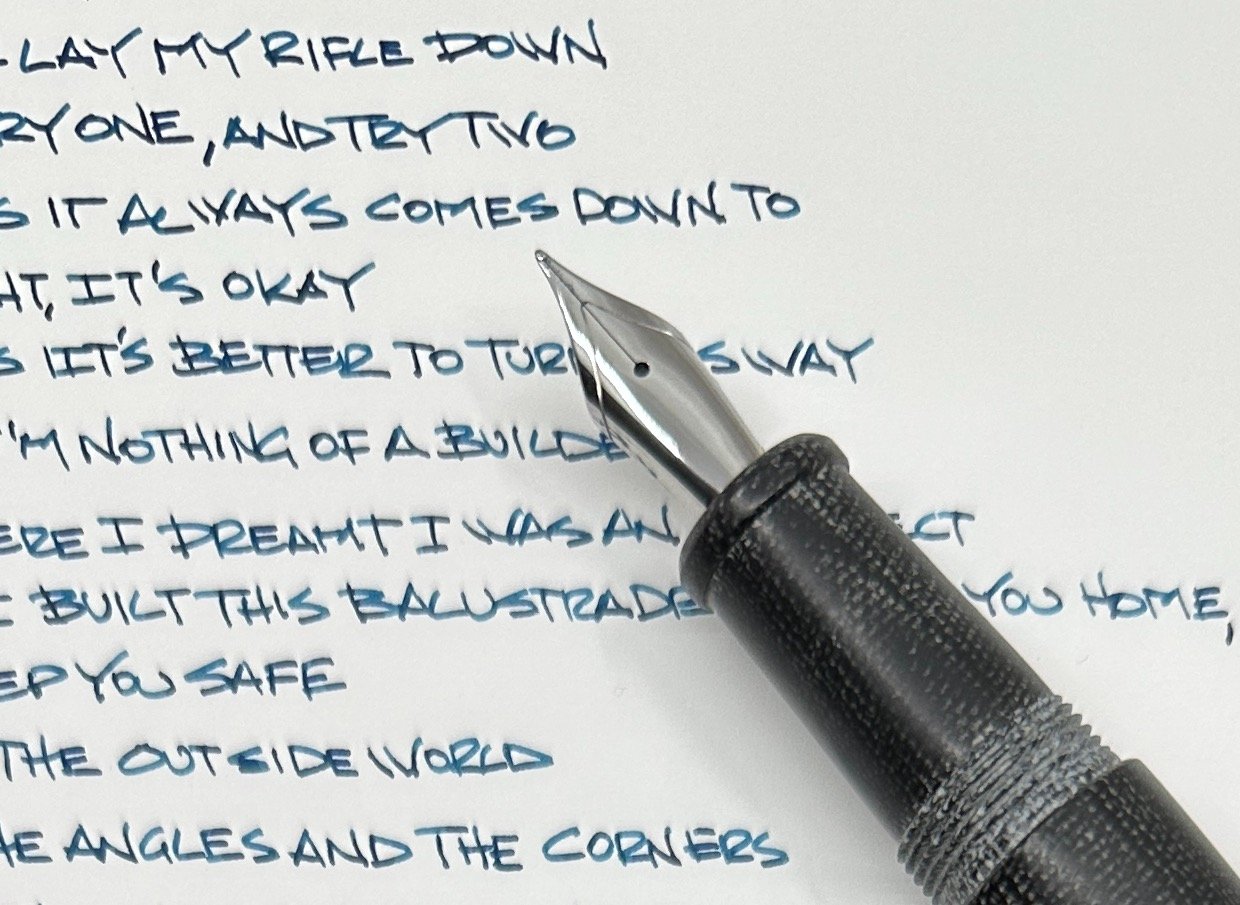 LAY MY RIFLE DOWN
ONE, AND TRY TWO
IT ALWAYS COMES DOWN TO
IT'S OKAY
IIT'S BETTER TO WAY
I'M NOTHING OF A
I DREAMT I WAS AN
BUILT THIS BALUSTRADE YOU HOME,
YOU SAFE
THE OUTSIDE WORLD
ANGLES AND THE CORNERS